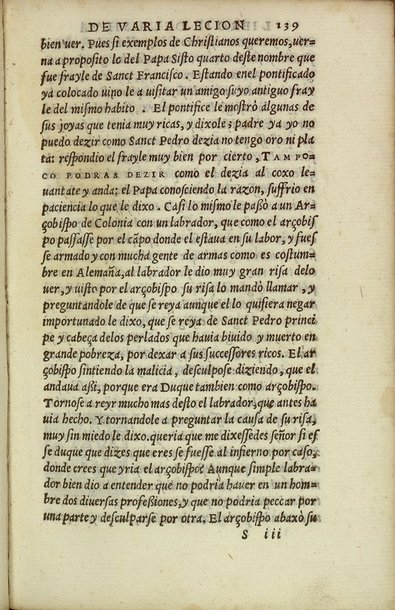 DE VARIA LECION 139
bien uer. Pues si exemplos de Christianos queremos, uer-
na a proposito lo del Papa Sisto quarto deste nombre que
fue frayle de Sanct Francisco. Estando enel pontificado
ya colocado uino le a uisitar un amigo suyo antiguo fray
le del mismo habito . El pontifice le mostrò algunas de
sus joyas que tenia muy ricas, y dixole; padre ya yo no
puedo dezir como Sanct Pedro dezia no tengo oro ni pla
ta: respondio el frayle muy bien por cierto, TAMPO=
CO PODRAS DEZIR como el dezia al coxo le-
uantate y anda: el Papa conosciendo la razon, suffrio en
paciencia lo que le dixo. Casi lo mismo le passò a un Ar-
çobispo de Colonia con un labrador, que como el arçobis
po passasse por el cãpo donde el estaua en su labor, y fues
se armado y con mucha gente de armas como es costum-
bre en Alemaña, al labrador le dio muy gran risa delo
uer, y uisto por el arçobispo su risa lo mandò llamar , y
preguntandole de que se reya aunque el lo quisiera negar
importunado le dixo, que se reya de Sanct Pedro princi
pe y cabeça delos perlados que hauia biuido y muerto en
grande pobreza, por dexar a sus successores ricos. El ar
çobispo sintiendo la malicia, desculpose diziendo, que el
andaua assi, porque era Duque tambien como arçobispo.
Tornose a reyr mucho mas desto el labrador, que antes ha
uia hecho. Y tornandole a preguntar la causa de su risa,
muy sin miedo le dixo. queria que me dixessedes señor si es
se duque que dizes que eres se fuesse al infierno por caso,
donde crees que yria el arçobispo? Aunque simple labra-
dor bien dio a entender que no podria hauer en un hom-
bre dos diuersas professiones, y que no podria peccar por
una parte y desculparse por otra. El arçobispo abaxò su
S iii